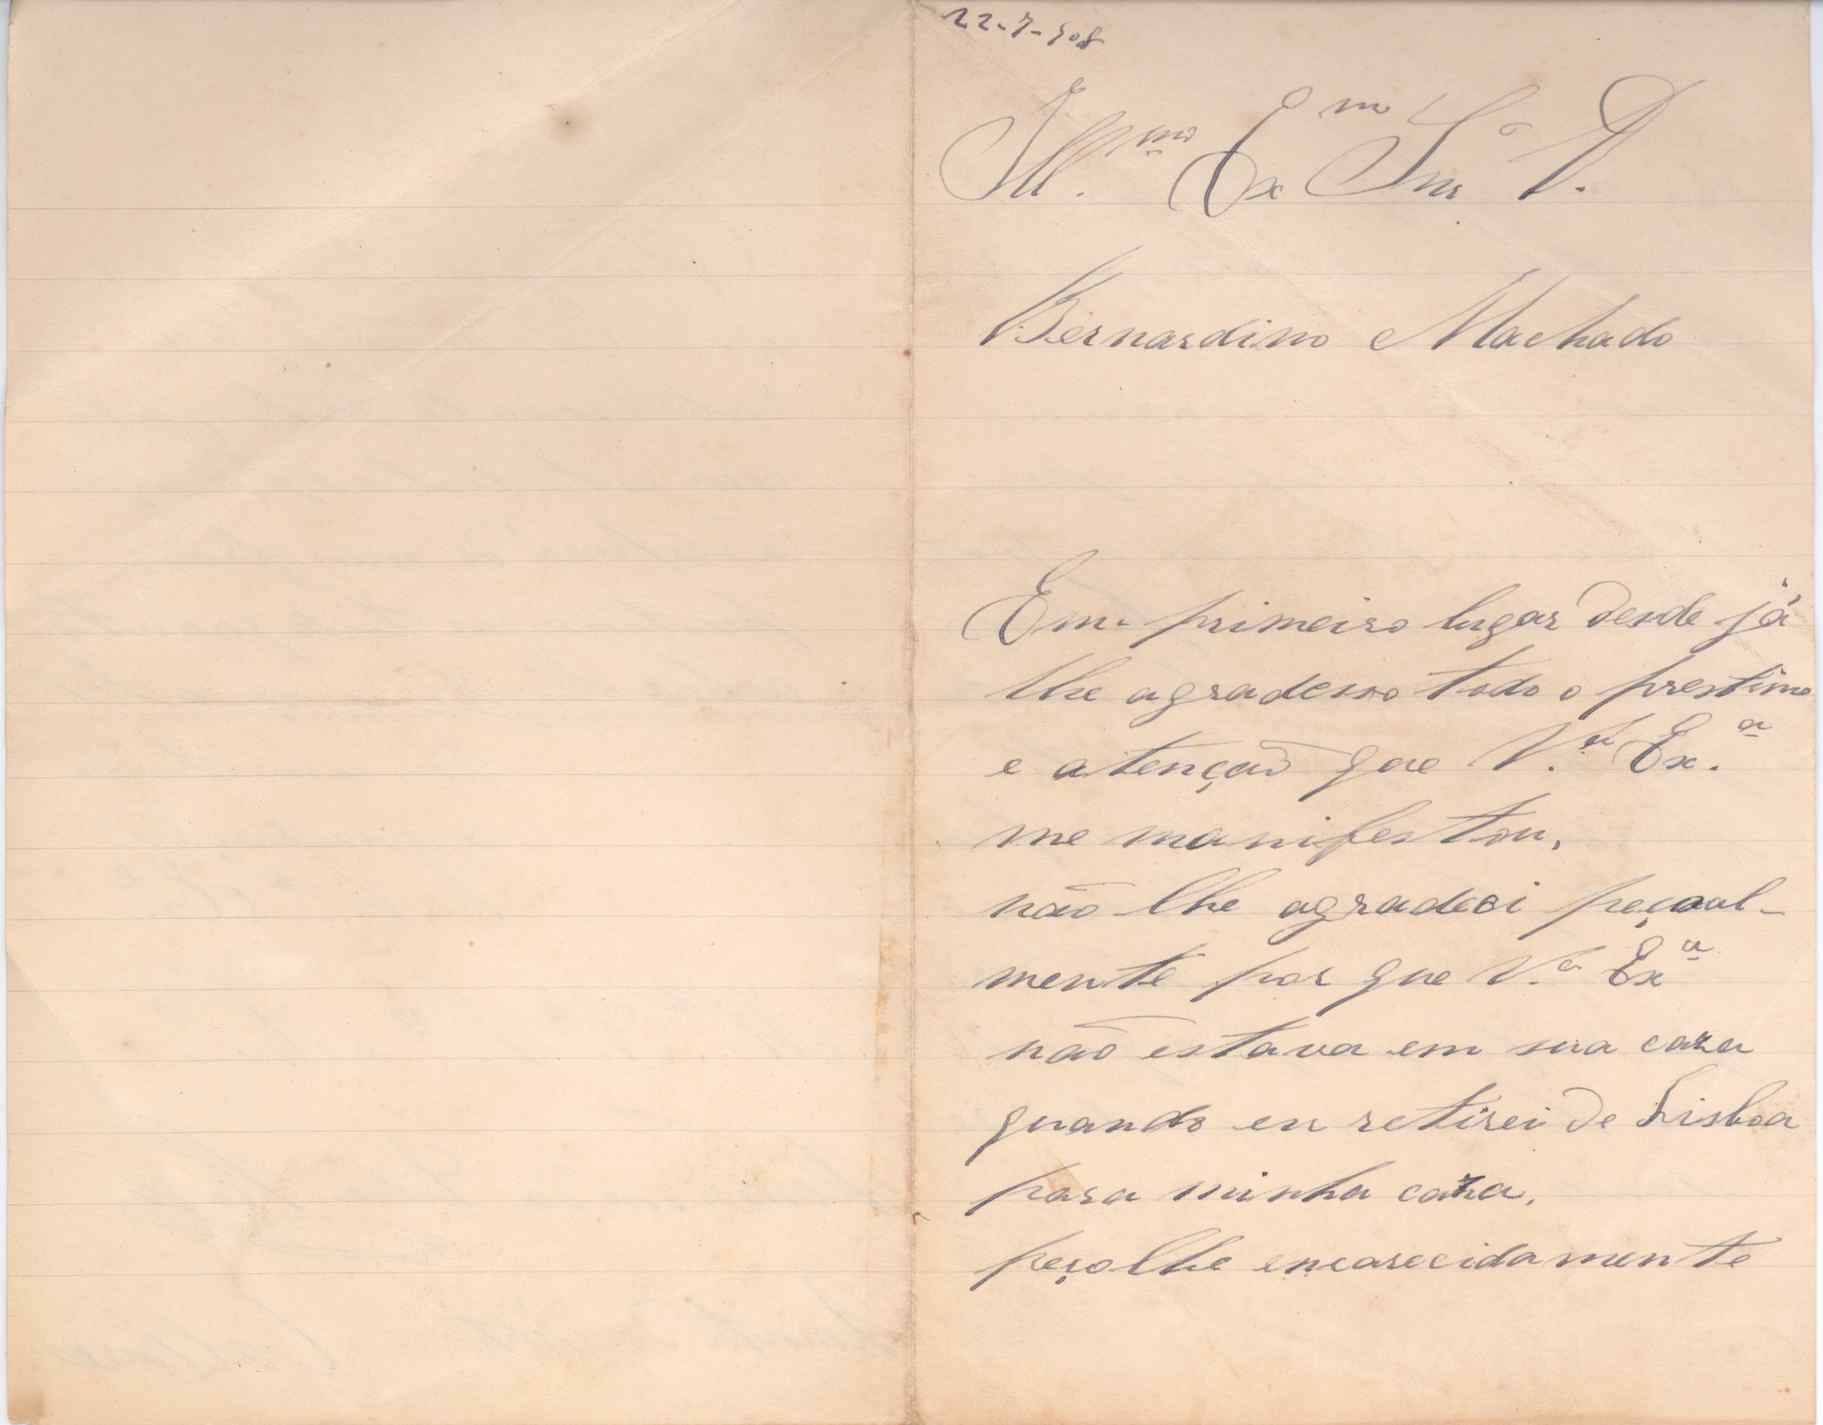 22-7-908
Ill.mo Exm Snr D.
Bernardino Machado
Em primeiro lugar desde já
lhe agradesso todo o prestimo
e atenção que V.a Ex.a
me manifestou,
não lhe agradeci peçoal-
mente por que V.a Exa
não estava em sua caza
quando eu retirei de Lisboa
para minha caza,
peçolhe encarecidamente